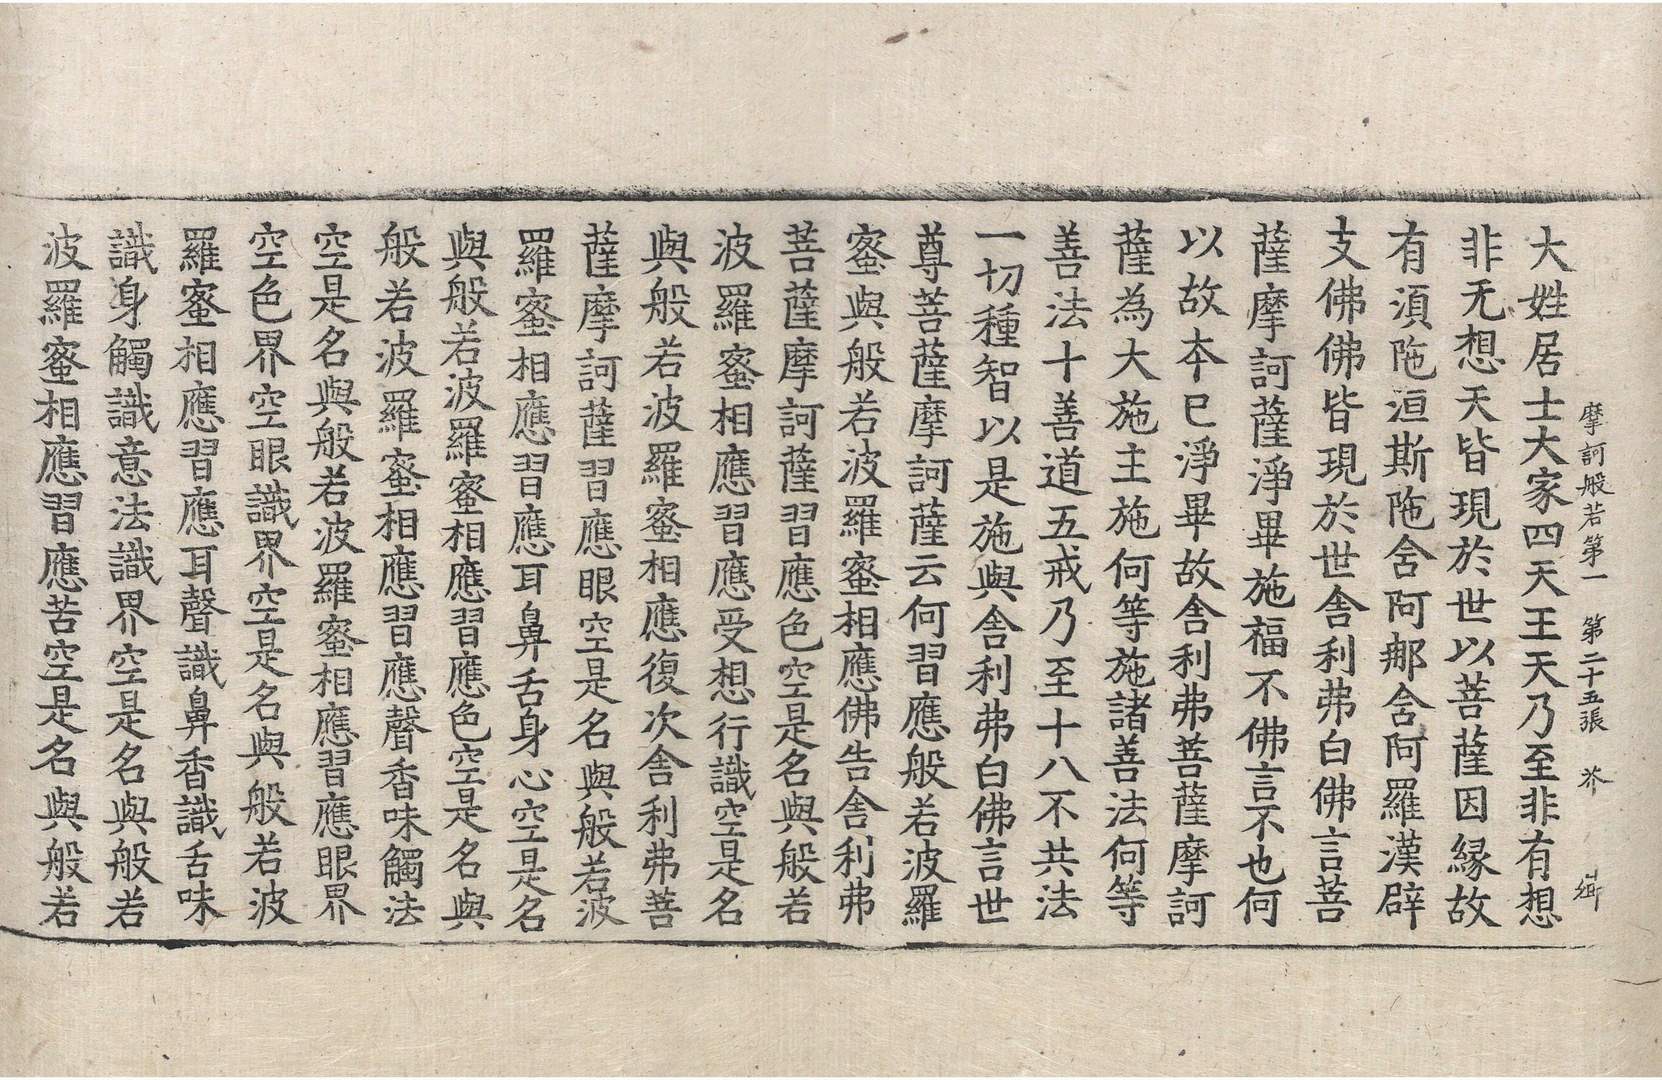 摩訶般若第一 第二十五張 芥
大姓居士大家四天王天乃至非有想
非无想天皆現於世以菩薩因緣故
有須陁洹斯陁含阿那含阿羅漢辟
支佛佛皆現於世舍利弗白佛言菩
薩摩訶薩淨畢施福不佛言不也何
以故本已淨畢故舍利弗菩薩摩訶
薩為大施主施何等施諸善法何等
善法十善道五戒乃至十八不共法
一切種智以是施與舍利弗白佛言世
尊菩薩摩訶薩云何習應般若波羅
蜜與般若波羅蜜相應佛告舍利弗
菩薩摩訶薩習應色空是名與般若
波羅蜜相應習應受想行識空是名
與般若波羅蜜相應復次舍利弗菩
薩摩訶薩習應眼空是名與般若波
羅蜜相應習應耳鼻舌身心空是名
與般若波羅蜜相應習應色空是名與
般若波羅蜜相應習應聲香味觸法
空是名與般若波羅蜜相應習應眼界
空色界空眼識界空是名與般若波
羅蜜相應習應耳聲識鼻香識舌味
識身觸識意法識界空是名與般若
波羅蜜相應習應苦空是名與般若